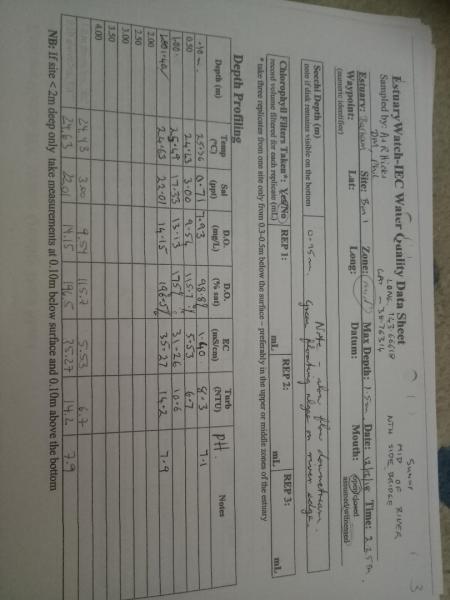 SUNNY
MID OF RIVER
NTH SIDE BRIDGE
3
EstuaryWatch-IEC Water Quality Data Sheet
LONG 143.66618
LAT - 38.76316
Sampled by: A & R Hicks
Phil
Estuary: Site: Bm 1 Zone: mid Max Depth: 1.5m Date: Time: 2.25 pm
(numeric identifier)
Waypoint: Lat: Long: Datum: Mouth: open/closed
assumed/witnessed
Secchi Depth (m)
note if disk remains visible on the bottom
0.95m.
Note - slow flow downstream.
Green floating algae on river edge.
Chlorophyll Filters Taken*: Yes/No REP 1: REP 2: REP 3:
record volume filtered for each replicate (mL) mL mL mL
* take three replicates from one site only from 0.3-0.5m below the surface – preferably in the upper or middle zones of the estuary
Depth Profiling
Depth (m) Temp (°C) Sal (ppt) D.O. (mg/L) D.O. (% sat) EC (mS/cm) Turb (NTU) pH. Notes
.10m 25.06 0.71 7.93 98.8% 1.40 8.3 7.1
0.50 24.93 3.00 9.54 115.7% 5.53 6.7
1.00 25.49 17.33 13.13 175% 31.26 10.6
1.40 24.63 22.01 14.15 196.5% 35.27 14.2 7.9
2.00
2.50
3.00
3.50
4.00
24.93 3.00 9.54 115.7 5.53 6.7
24.63 22.01 14.15 196.5 35.27 14.2 7.9
NB: If site <2m deep only take measurements at 0.10m below surface and 0.10m above the bottom